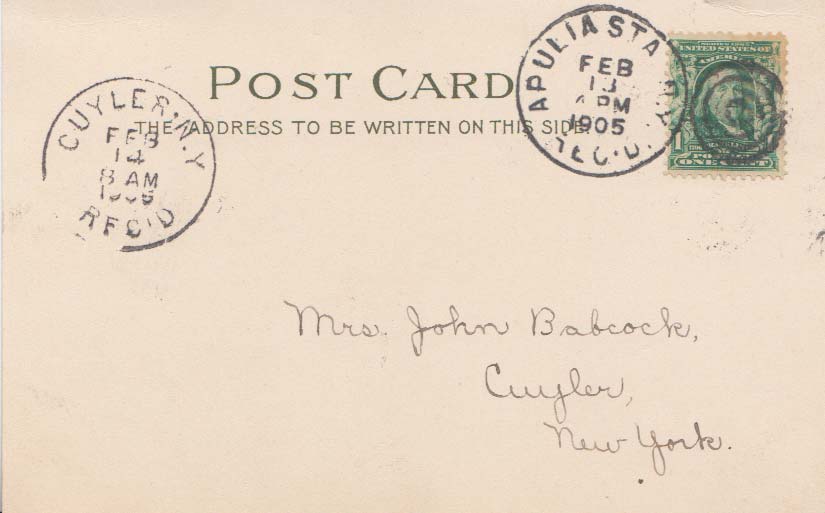 POST CARD
THE ADDRESS TO BE WRITTEN ON THIS SIDE
APULIA STA.
FEB
13
4 PM
1905
REC'D.
SERIES 1902
UNITED STATES OF
AMERICA
1
ONE CENT
CUYLER. N.Y
FEB
14
8 AM
1905
REC'D
Mrs. John Babcock,
Cuyler,
New York.